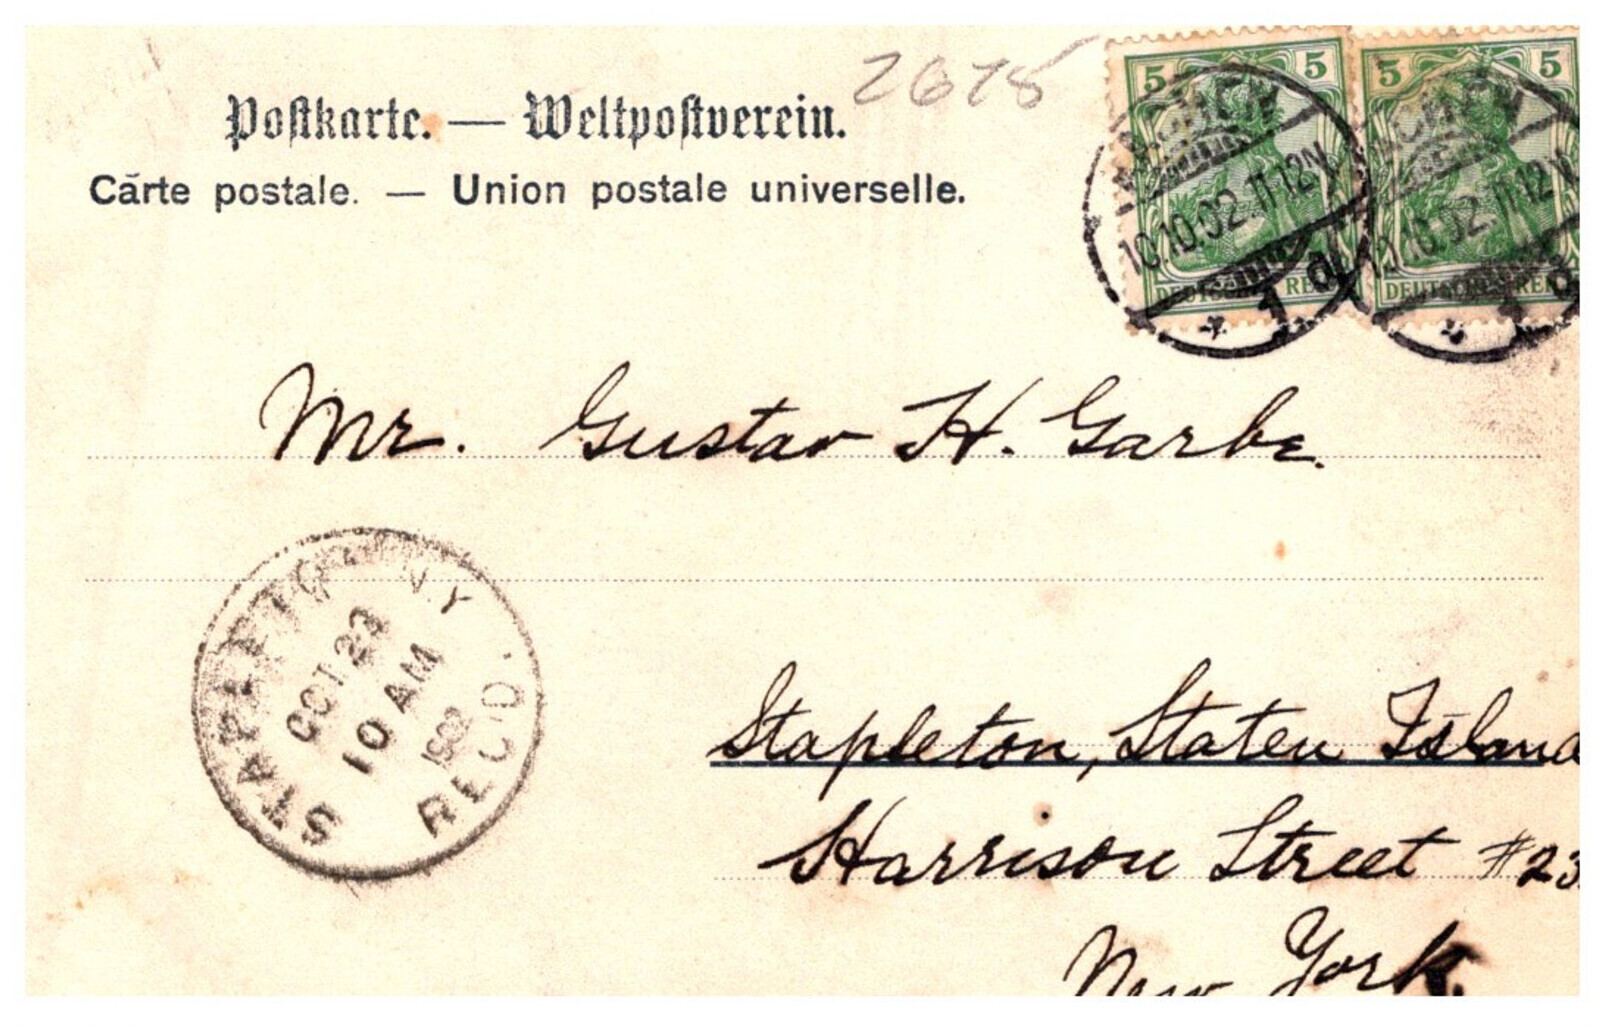 Postkarte. — Weltpostverein.
2675
Carte postale. — Union postale universelle.
5 5
5 5
10.10.02.11-12N
10.02.11-12N
1 d
DEUTSCHES REICH
DEUTSCHES REICH
Mr. Gustav H. Garbe.
STAPLETON N.Y.
OCT 23
10 AM
1902
REC'D.
Stapleton, Staten Island
Harrison Street #23
New York.